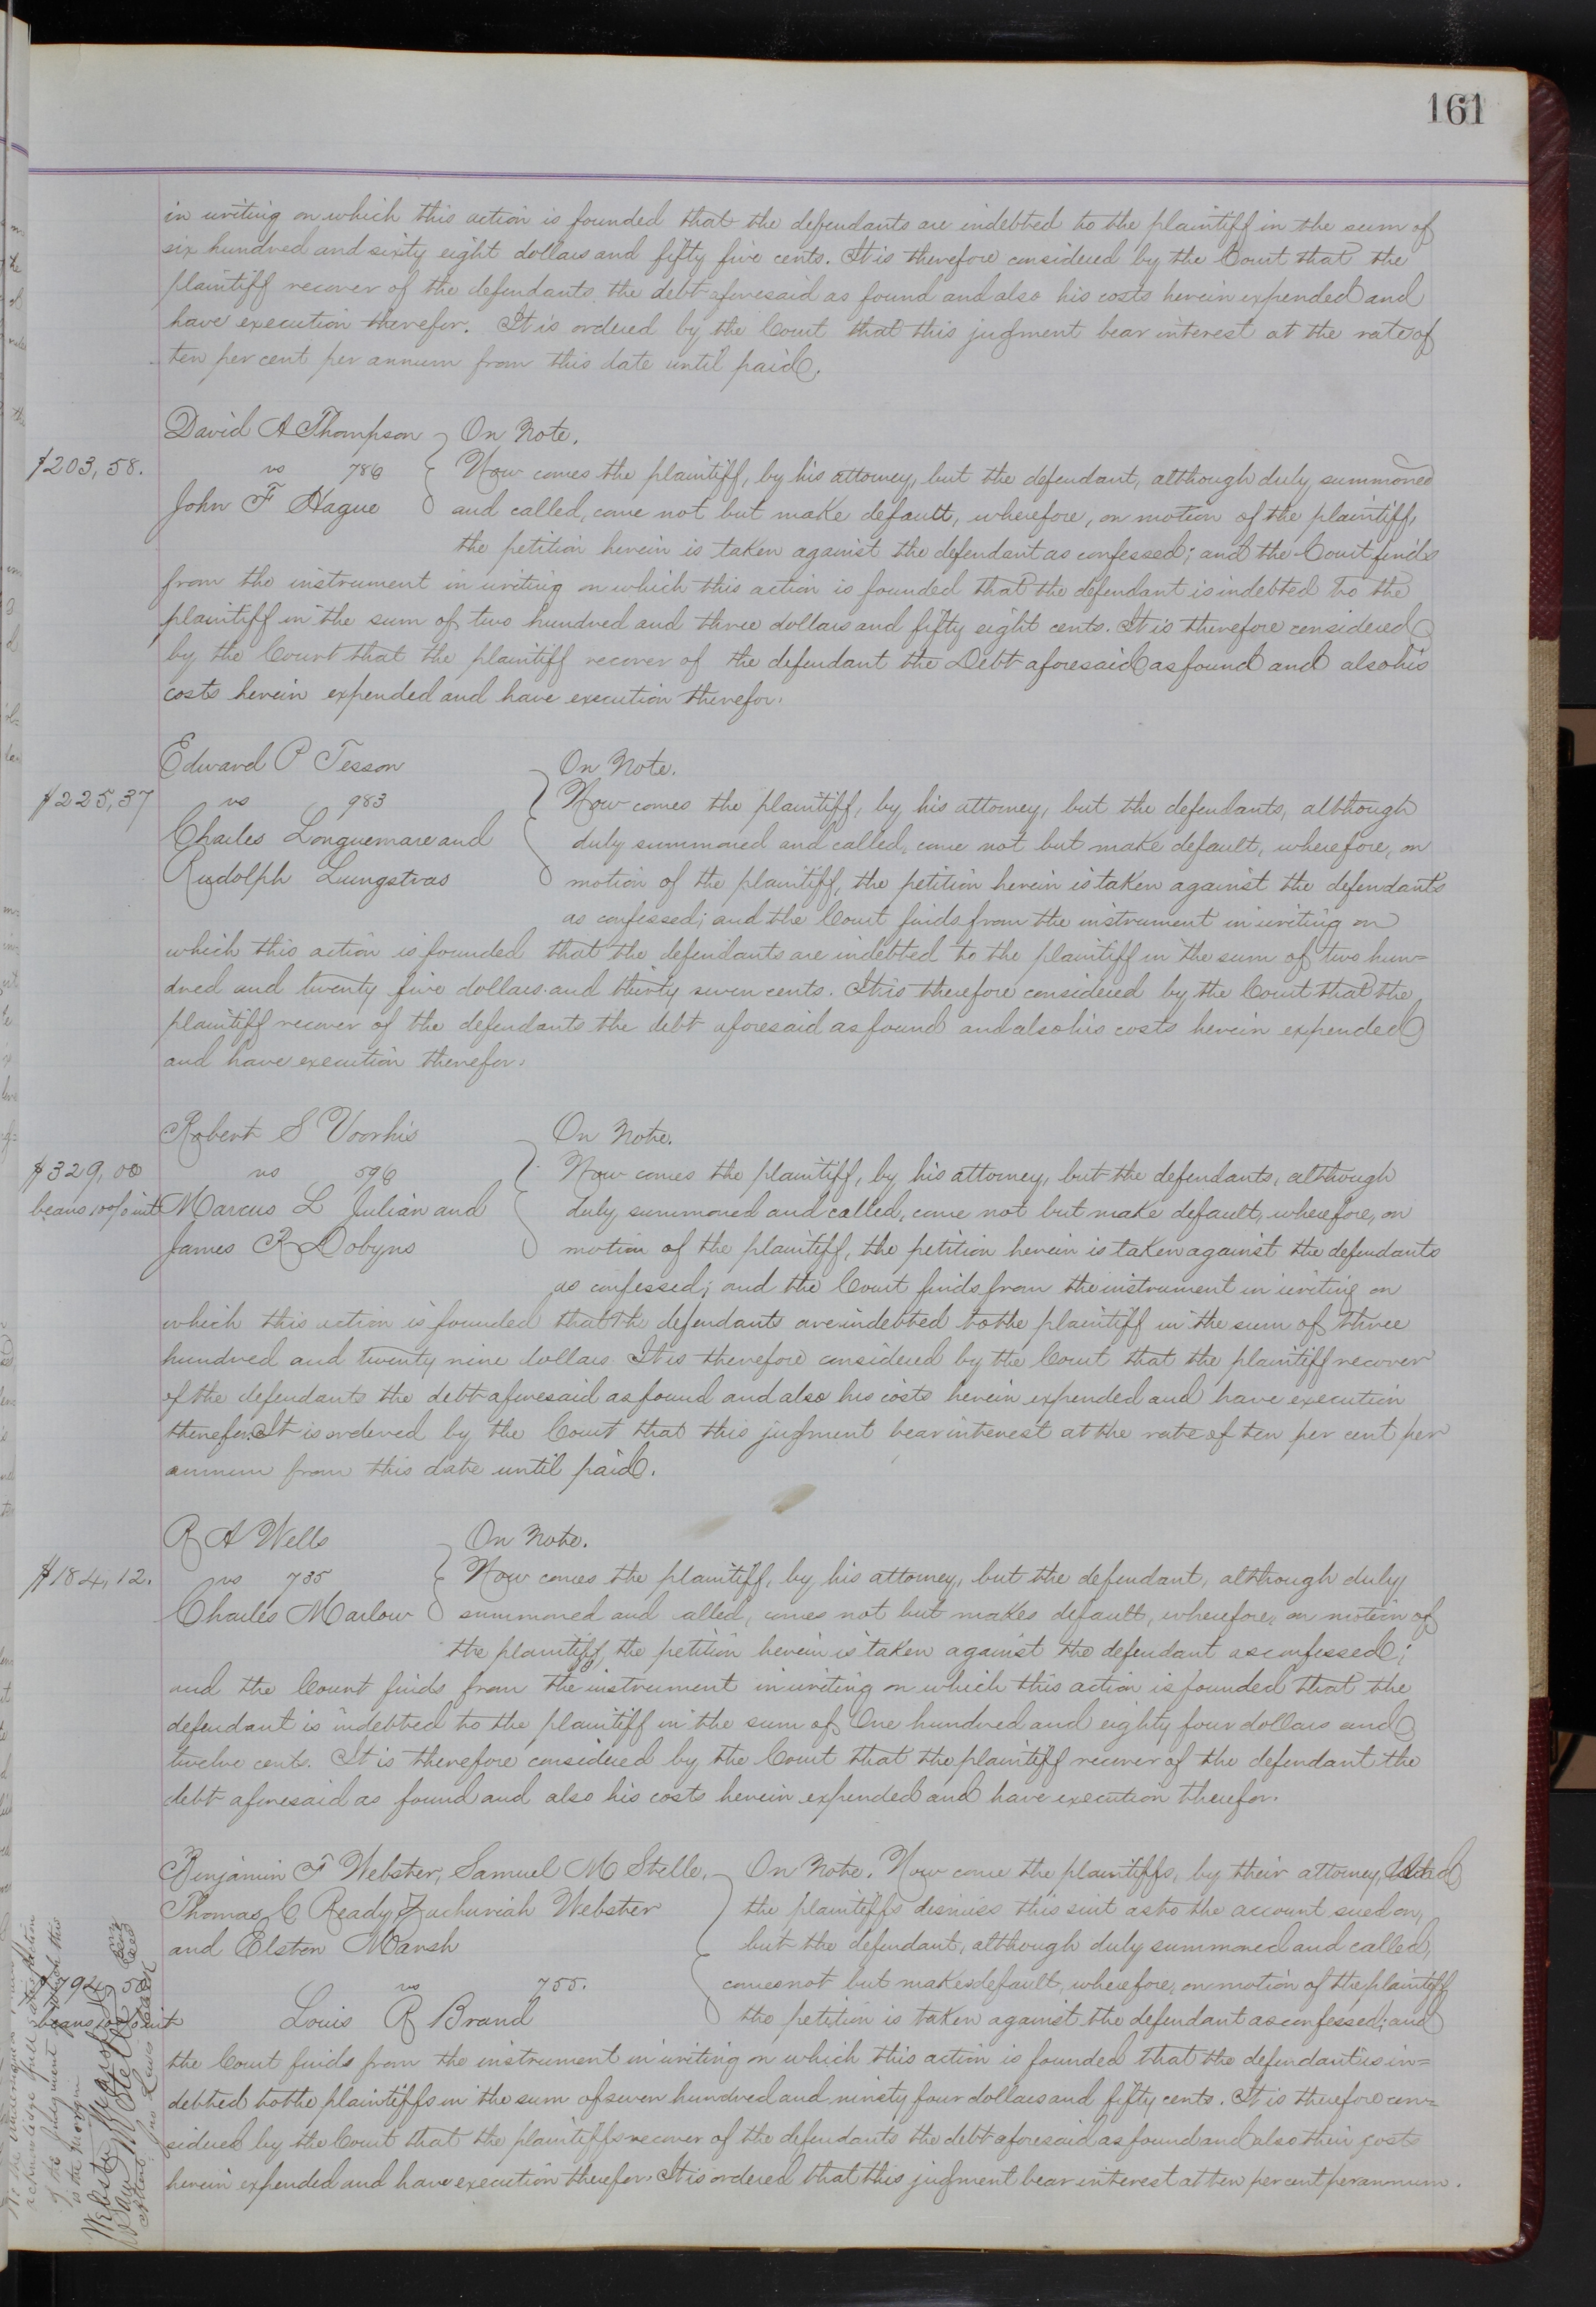 161
in writing on which this action is founded that the defendants are indebted to the plaintiff in the sum of
six hundred and sixty eight dollars and fifty five cents. It is therefore considered by the Court that the
plaintiff recover of the defendants the debt aforesaid as found and also his costs herein expended and
have execution therefor. It is ordered by the Court that this judgment bear interest at the rate of
ten per cent per annum from this date until paid.
David A Thompson On Note.
$203,58. vs 786 Now comes the plaintiff, by his attorney, but the defendant, although duly summoned
John F Hague and called, come not but make default, wherefore, on motion of the plaintiff,
the petition herein is taken against the defendant as confessed; and the Court finds
from the instrument in writing on which this action is founded that the defendant is indebted to the
plaintiff in the sum of two hundred and three dollars and fifty eight cents. It is therefore considered
by the Court that the plaintiff recover of the defendant the Debt aforesaid as found and also his
costs herein expended and have execution therefor.
Edward P Tesson On Note.
$225,37 vs 983 Now comes the plaintiff, by his attorney, but the defendants, although
Charles Longuemare and duly summoned and called, come not but make default, wherefore, on
Rudolph Lungstras motion of the plaintiff, the petition herein is taken against the defendants
as confessed; and the Court finds from the instrument in writing on
which this action is founded that the defendants are indebted to the plaintiff in the sum of two hun=
dred and twenty five dollars and thirty seven cents. It is therefore considered by the Court that the
plaintiff recover of the defendants the debt aforesaid as found and also his costs herein expended
and have execution therefor.
Robert S Voorhis On Note.
$329,00 vs 596 Now comes the plaintiff, by his attorney, but the defendants, although
bears 10% int Marcus L Julian and duly summoned and called, come not but make default, wherefore, on
James R Dobyns motion of the plaintiff, the petition herein is taken against the defendants
as confessed; and the Court finds from the instrument in writing on
which this action is founded that th defendants are indebted to the plaintiff in the sum of three
hundred and twenty nine dollars. It is therefore considered by the Court that the plaintiff recover
of the defendants the debt aforesaid as found and also his costs herein expended and have execution
therefor. It is ordered by the Court that this judgment bear interest at the rate of ten per cent per
annum from this date until paid.
R A Wells On Note.
$184,12. vs 735 Now comes the plaintiff, by his attorney, but the defendant, although duly
Charles Marlow summoned and called, comes not but makes default, wherefore, on motion of
the plaintiff, the petition herein is taken against the defendant as confessed;
and the Court finds from the instrument in writing on which this action is founded that the
defendant is indebted to the plaintiff in the sum of One hundred and eighty four dollars and
twelve cents. It is therefore considered by the Court that the plaintiff recover of the defendant the
debt aforesaid as found and also his costs herein expended and have execution therefor.
Benjamin F Webster, Samuel M Stelle, On Note. Now come the plaintiffs, by their attorney,
Thomas C Ready Zachariah Webster the plaintiffs dismiss this suit as to the account sued on,
and Elston Marsh but the defendant, although duly summoned and called,
$794,50 vs 755. comes not but makes default, wherefore, on motion of the plaintiff
bears 10% int Louis R Brand the petition is taken against the defendant as confessed; and
the Court finds from the instrument in writing on which this action is founded that the defendant is in=
debted to the plaintiffs in the sum of seven hundred and ninety four dollars and fifty cents. It is therefore con=
sidered by the Court that the plaintiffs recover of the defendants the debt aforesaid as found and also their costs
herein expended and have execution therefor. It is ordered that this judgment bear interest at ten per cent per annum.
acknowledge full satisfaction
of the judgment
in the margin